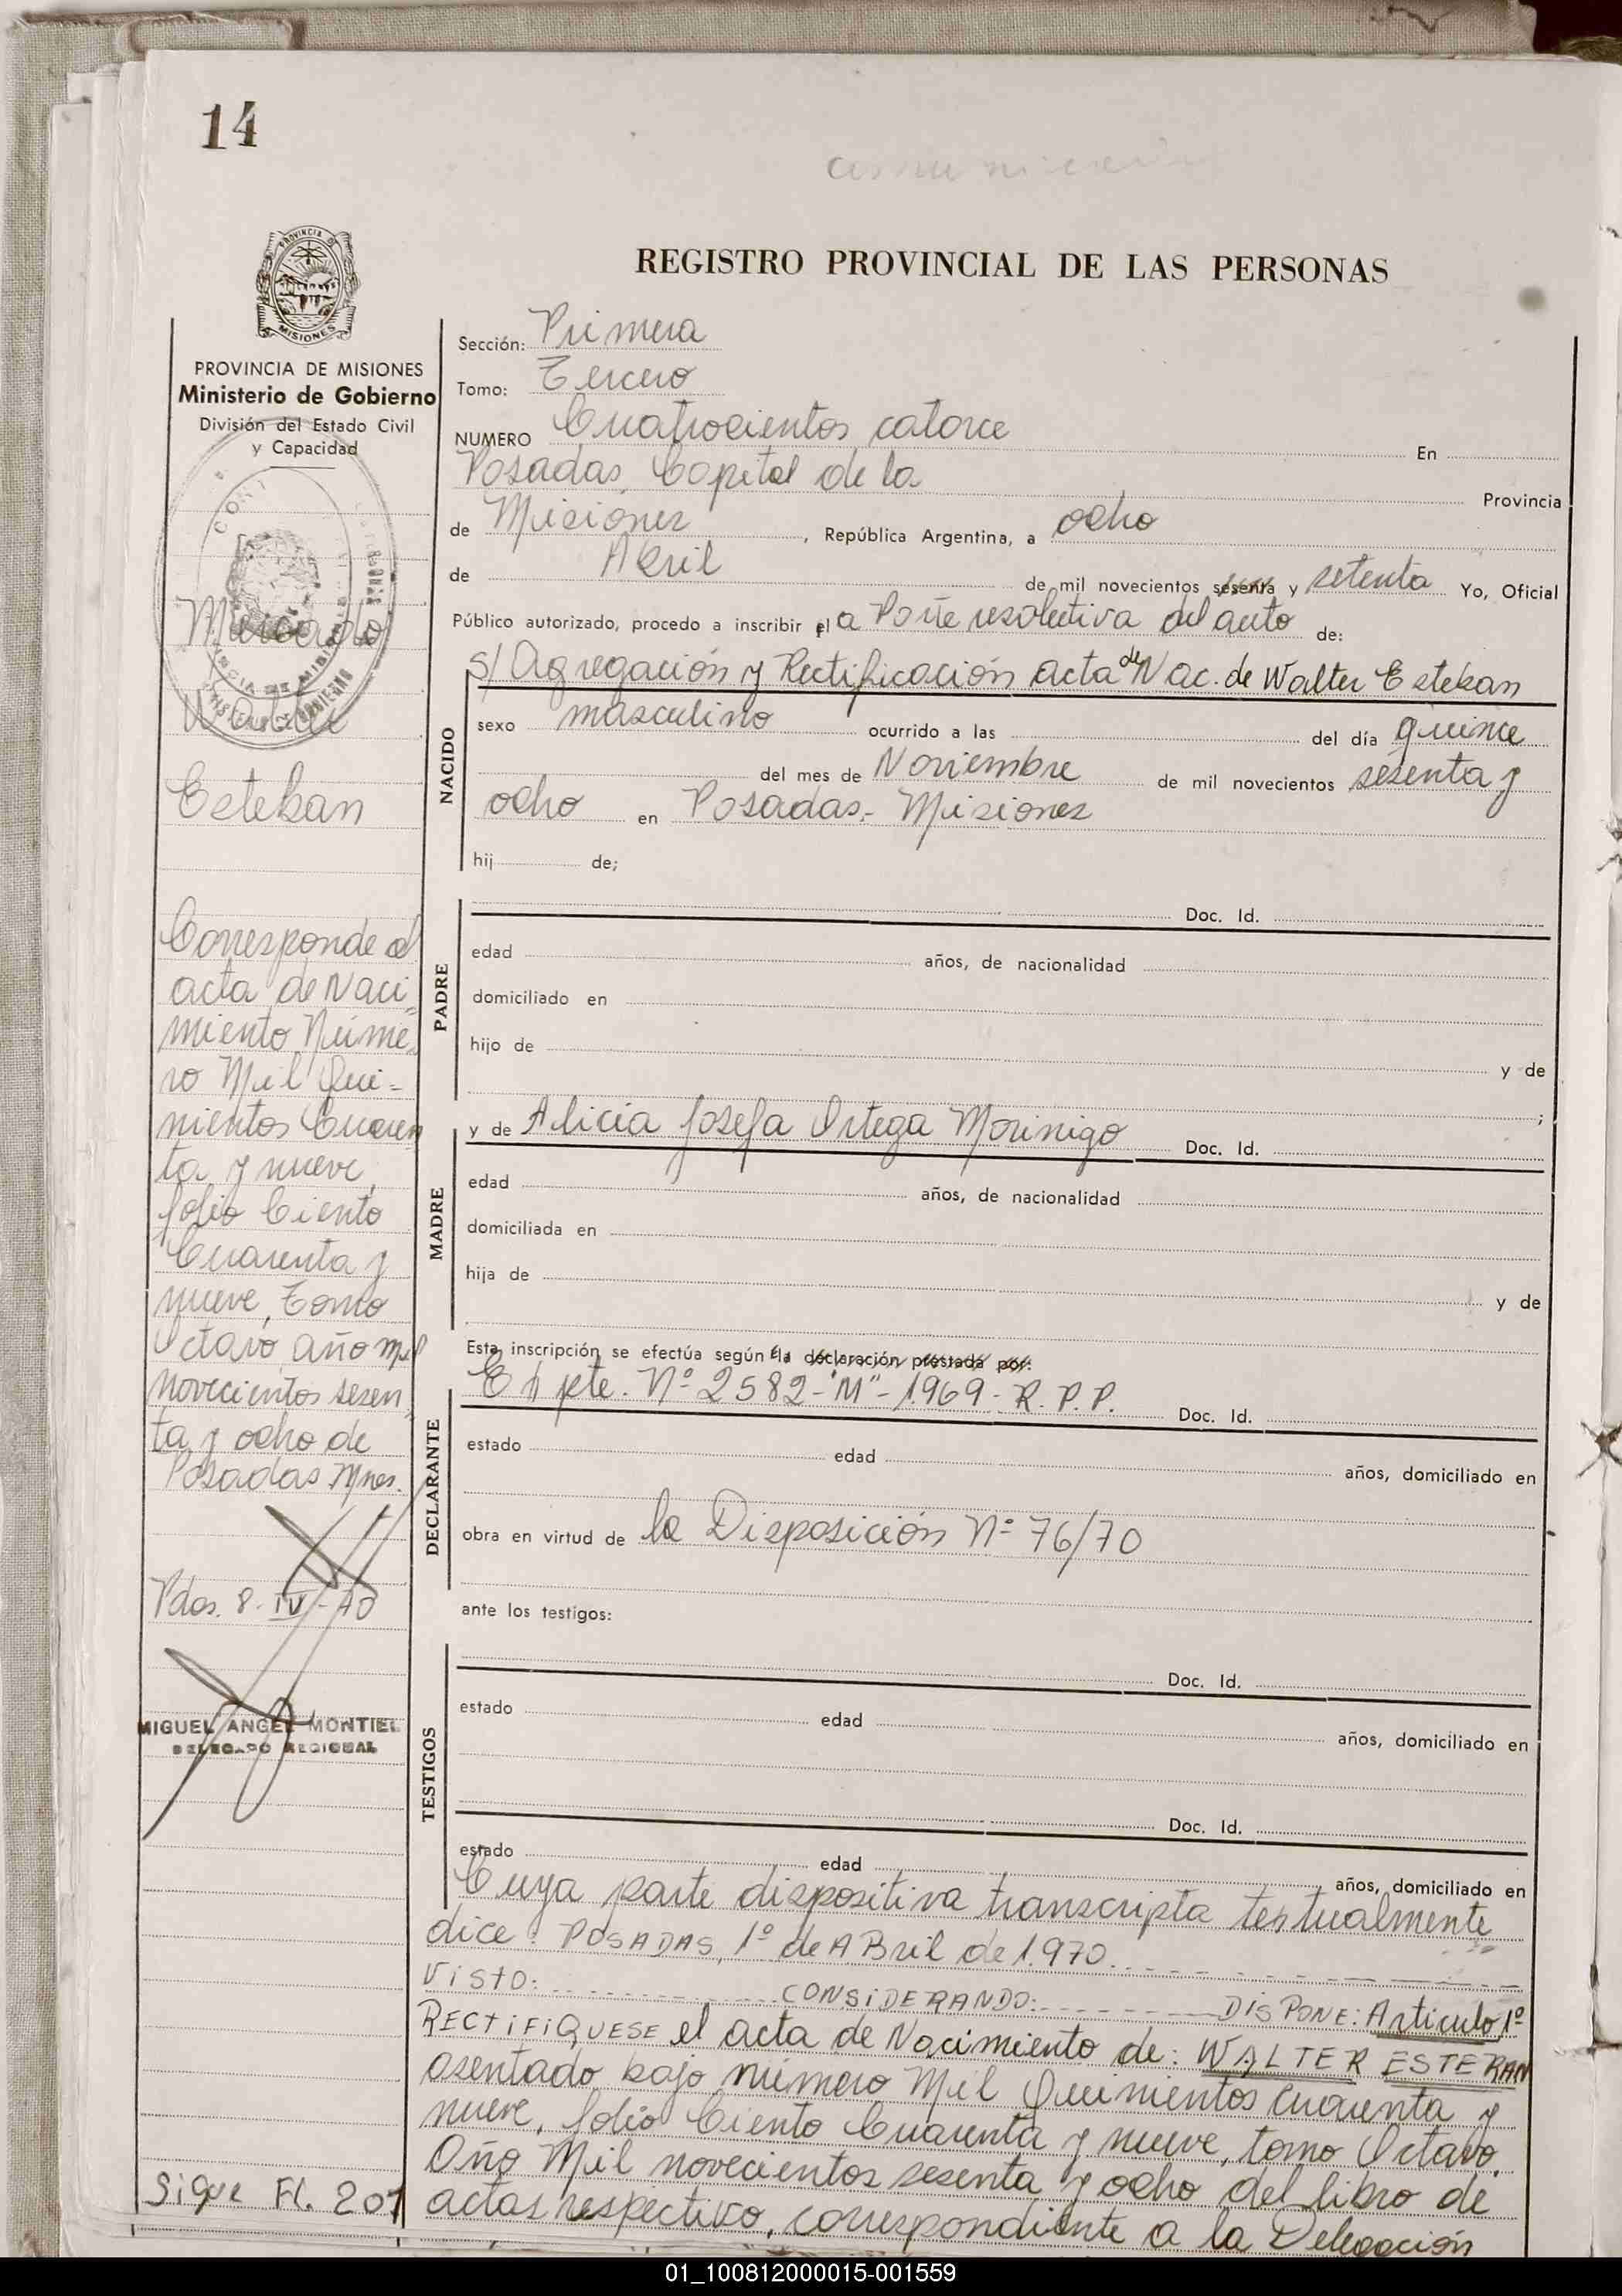 14
REGISTRO PROVINCIAL DE LAS PERSONAS
PROVINCIA DE
MISIONES
PROVINCIA DE MISIONES
Ministerio de Gobierno
División del Estado Civil
y Capacidad
Mercado
Walter
Esteban
Corresponde al
acta de Naci
miento Núme-
ro Mil Qui-
nientos Cuaren
ta y nueve,
folio Ciento
Cuarenta y
nueve, Tomo
Octavo, año mil
novecientos sesen
ta y ocho de
Posadas Mnes.
Pdas. 8-IV-70
MIGUEL ANGEL MONTIEL
DELEGADO REGIONAL
Sigue Fl. 207
Sección: Primera
Tomo: Tercero
NUMERO Cuatrocientos catorce En
Posadas, Capital de la Provincia
de Misiones, República Argentina, a ocho
de Abril de mil novecientos sesenta y setenta Yo, Oficial
Público autorizado, procedo a inscribir el a Parte resolutiva del auto de:
s/ Agregación y Rectificación acta de Nac. de Walter Esteban
NACIDO
sexo masculino ocurrido a las del día quince
del mes de Noviembre de mil novecientos sesenta y
ocho en Posadas.- Misiones
hij de;
PADRE
Doc. Id.
edad años, de nacionalidad
domiciliado en
hijo de y de
;
MADRE
y de Alicia Josefa Ortega Morinigo Doc. Id.
edad años, de nacionalidad
domiciliada en
hija de y de
Esta inscripción se efectúa según la declaración prestada por:
DECLARANTE
Expte. Nº 2582-"M"-1969-R.P.P. Doc. Id.
estado edad años, domiciliado en
obra en virtud de la Disposición Nº 76/70
ante los testigos:
TESTIGOS
Doc. Id.
estado edad años, domiciliado en
Doc. Id.
estado edad años, domiciliado en
Cuya parte dispositiva transcripta textualmente
dice: POSADAS, 1º de ABril de 1.970
VISTO: CONSIDERANDO: DISPONE: Artículo 1º
RECTIFIQUESE el acta de Nacimiento de: WALTER ESTEBAN
asentado bajo número Mil Quinientos Cuarenta y
nueve, folio Ciento Cuarenta y nueve, tomo Octavo,
Año Mil novecientos sesenta y ocho del libro de
actas respectivo, correspondiente a la Delegación
01_100812000015-001559